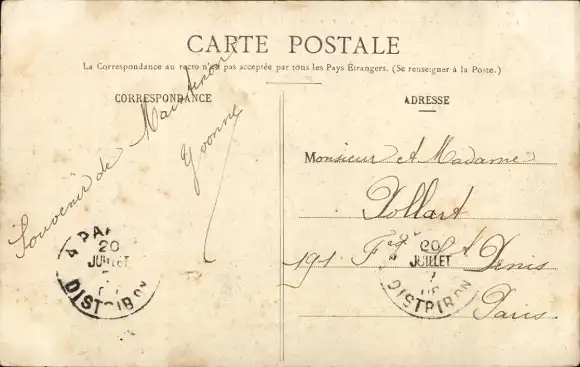 CARTE POSTALE
La Correspondance au recto n'est pas acceptée par tous les Pays Étrangers. (Se renseigner à la Poste.)
CORRESPONDANCE
Souvenir de
Yvonne
PA
20
JUILLET
DISTRIBON
ADRESSE
Monsieur et Madame
191 Fg St Denis
Paris
20
JUILLET
DISTRIBON